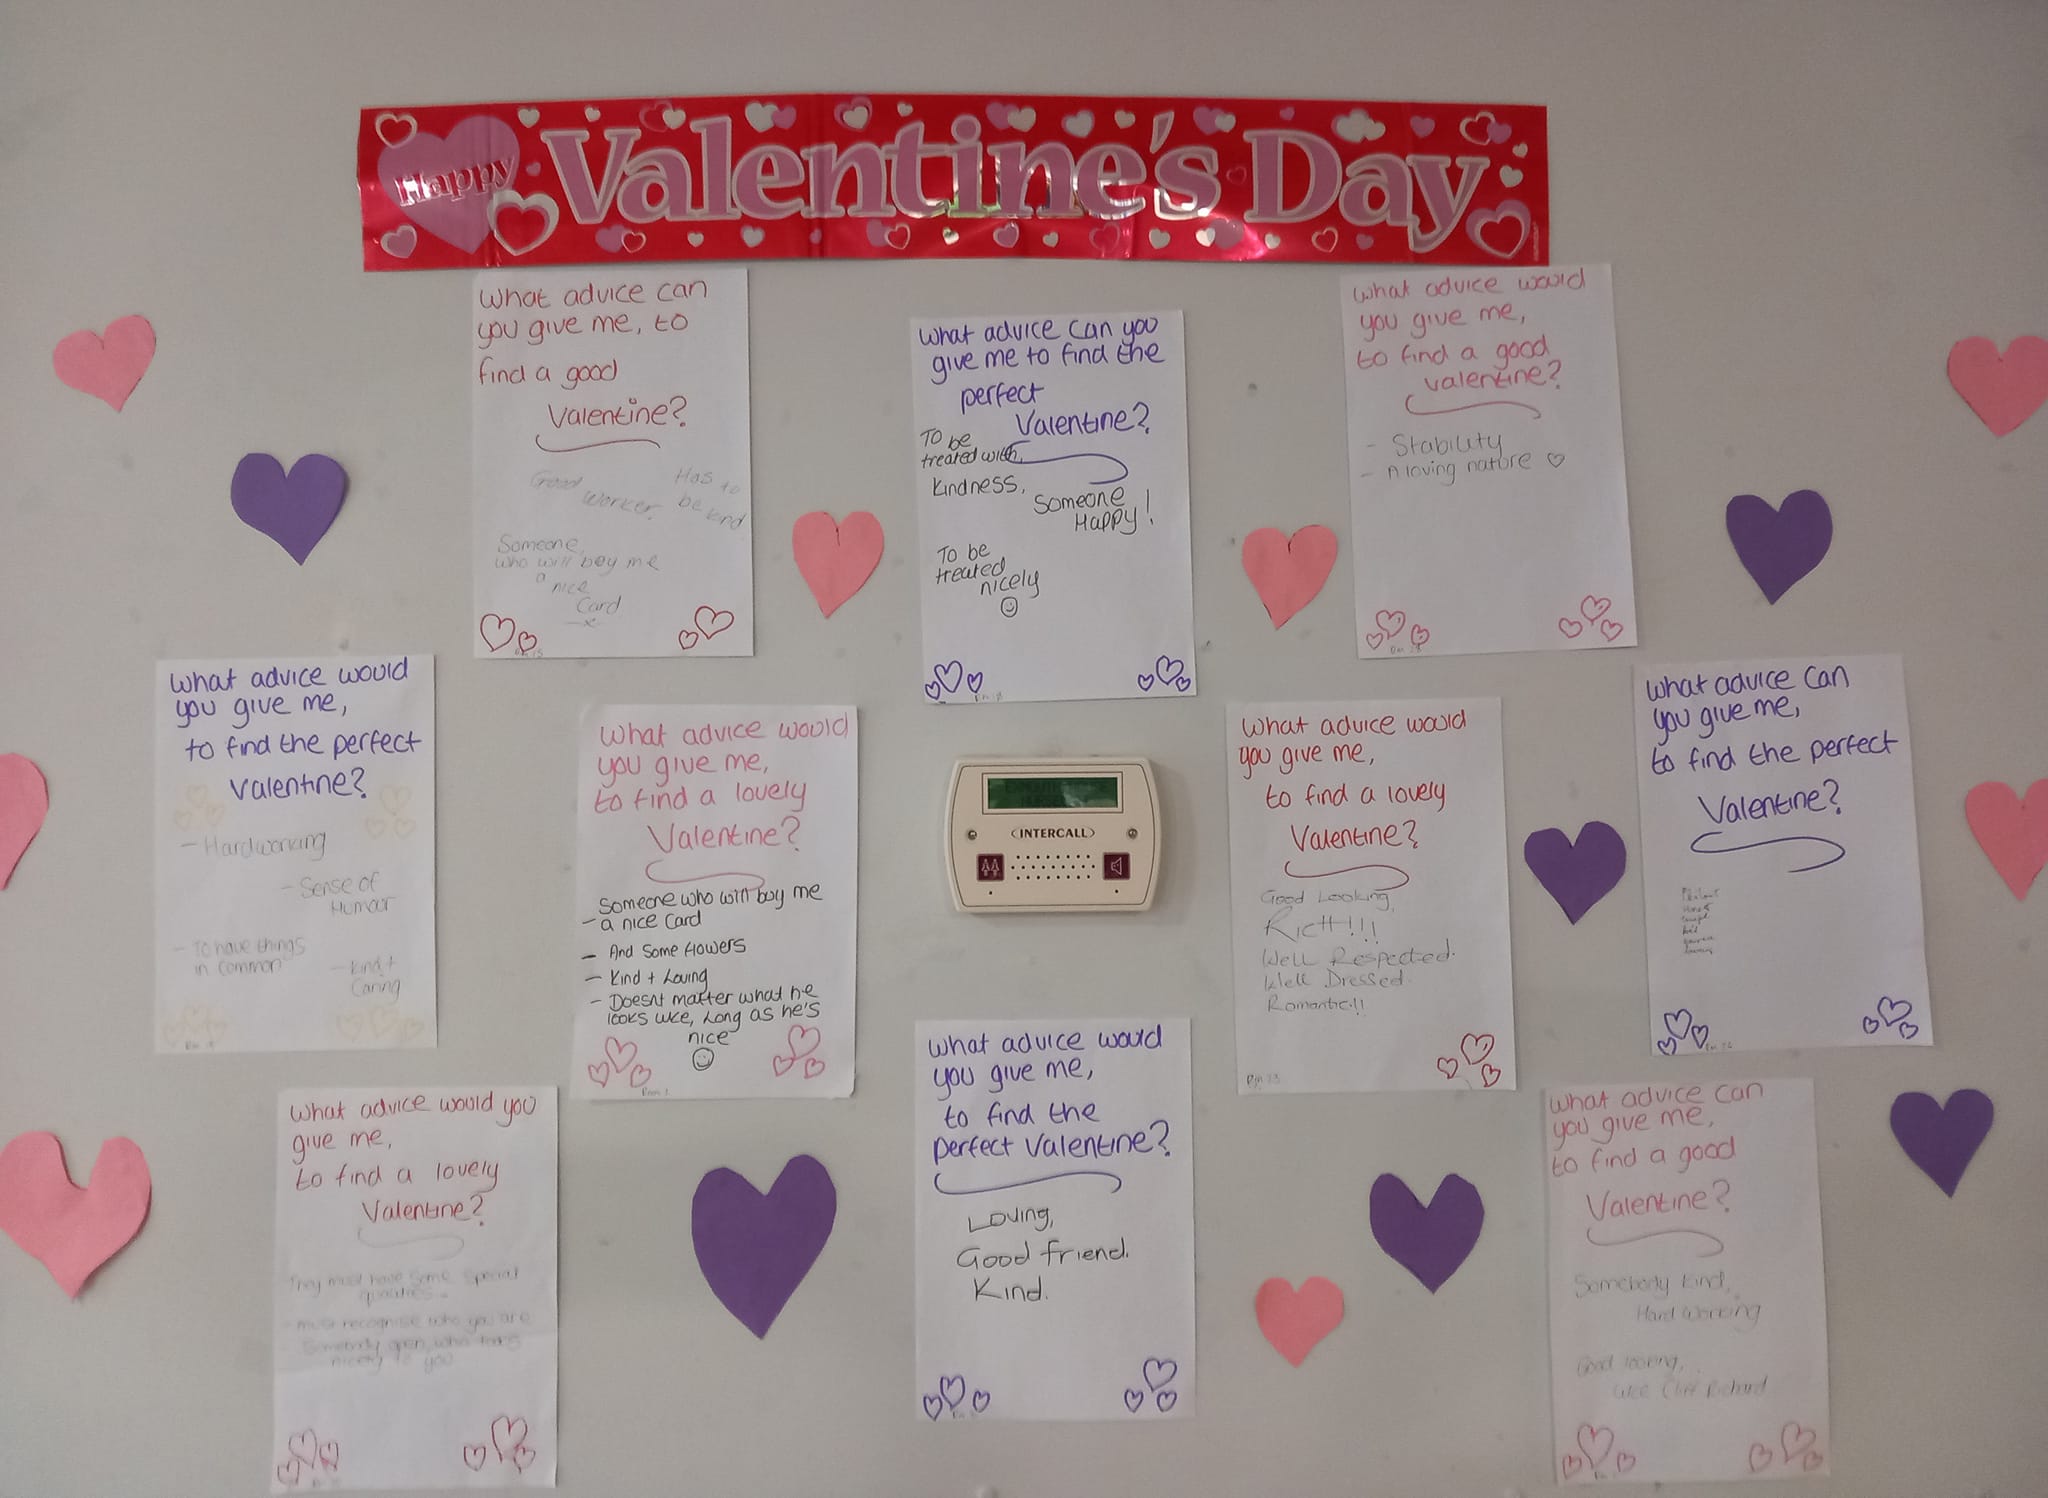 Happy Valentine's Day
What advice can
you give me, to
find a good
Valentine?
Good
Worker.
Has to
be kind
Someone,
who will buy me
a
nice
Card
x
What advice can you
give me to find the
perfect
Valentine?
To be
treated with
kindness,
Someone
Happy!
To be
treated
nicely
What advice would
you give me,
to find a good
valentine?
- Stability
- A loving nature
What advice would
you give me,
to find the perfect
Valentine?
- Hardworking
- Sense of
Humour
- To have things
in common
- Kind +
Caring
What advice would
you give me,
to find a lovely
Valentine?
Someone who will buy me
- a nice card
- And Some flowers
- Kind + Loving
- Doesnt matter what he
looks like, Long as he's
nice
Rm 1
INTERCALL
What advice would
you give me,
to find a lovely
Valentine?
Good Looking,
RICH!!!
Well Respected.
Well Dressed.
Romantic!!
Rm 23
What advice can
you give me,
to find the perfect
Valentine?
What advice would you
give me,
to find a lovely
Valentine?
They must have some special
qualities
- must recognise who you are
- Somebody open, who talks
nicely to you
What advice would
you give me,
to find the
perfect Valentine?
Loving,
Good friend.
Kind.
What advice can
you give me,
to find a good
Valentine?
Somebody Kind,
Hard Working
Good looking,
like Cliff Richard